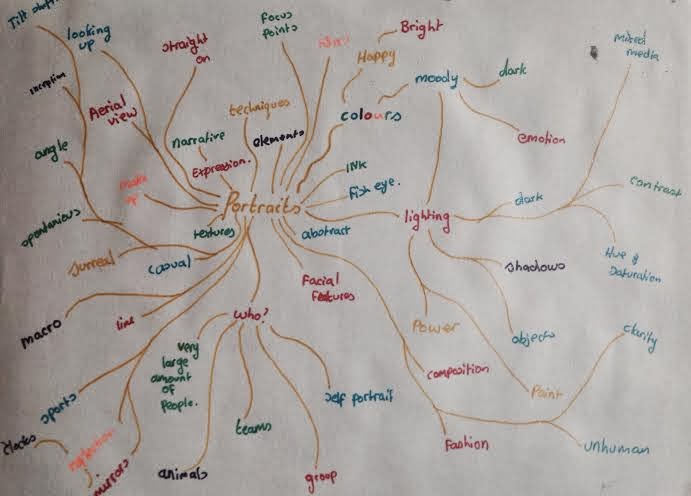 Tilt shift
looking
up
straight
on
Focus
points
Bright
Happy
mixed
media
moody
dark
inception
Aerial
view
techniques
elements
colours
narrative
Expression.
emotion
angle
make
up
INK
Fish eye.
Portraits
dark
contrast
spontanious
textures
abstract
lighting
surreal
casual
Facial
Features
shadows
Hue &
Saturation
macro
line
who?
Power
objects
clarity
very
large
amount
of
People.
composition
Point
sports
self portrait
clocks
reflection
teams
Fashion
unhuman
mirrors
animals
group